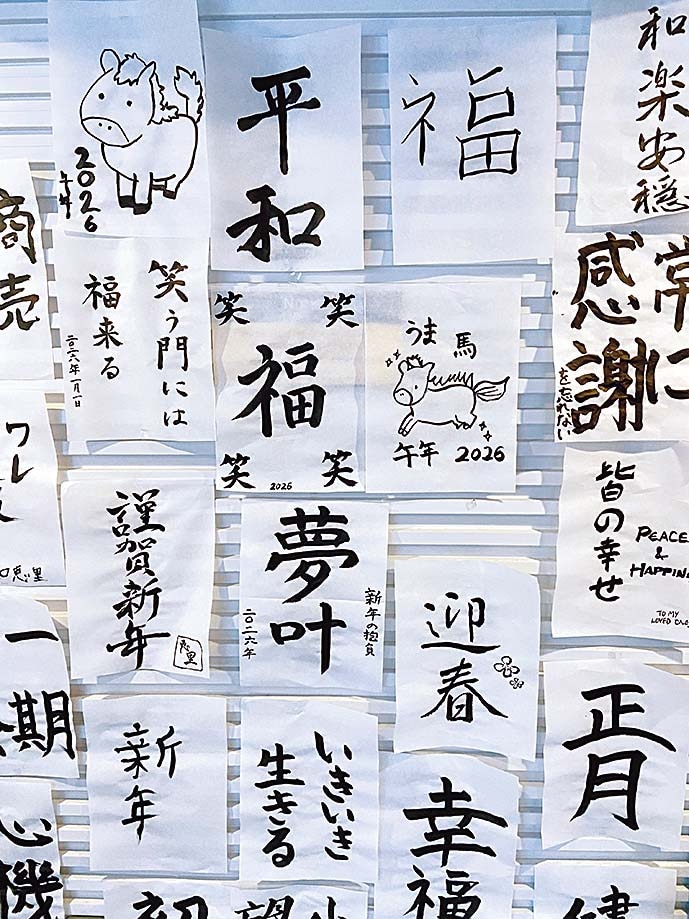 2026
午年
平和
福
和楽
安穏
商売
笑う門には
福来る
二〇二六年一月一日
笑 笑
福
笑 笑
2026
うま 馬
午年 2026
常に
感謝
を忘れない
謹賀新年
恵里
夢叶
新年の抱負
二〇二六年
迎春
皆の幸せ
PEACE
&
TO MY
LOVED
一期
新年
いきいき
生きる
幸福
正月
心機
初